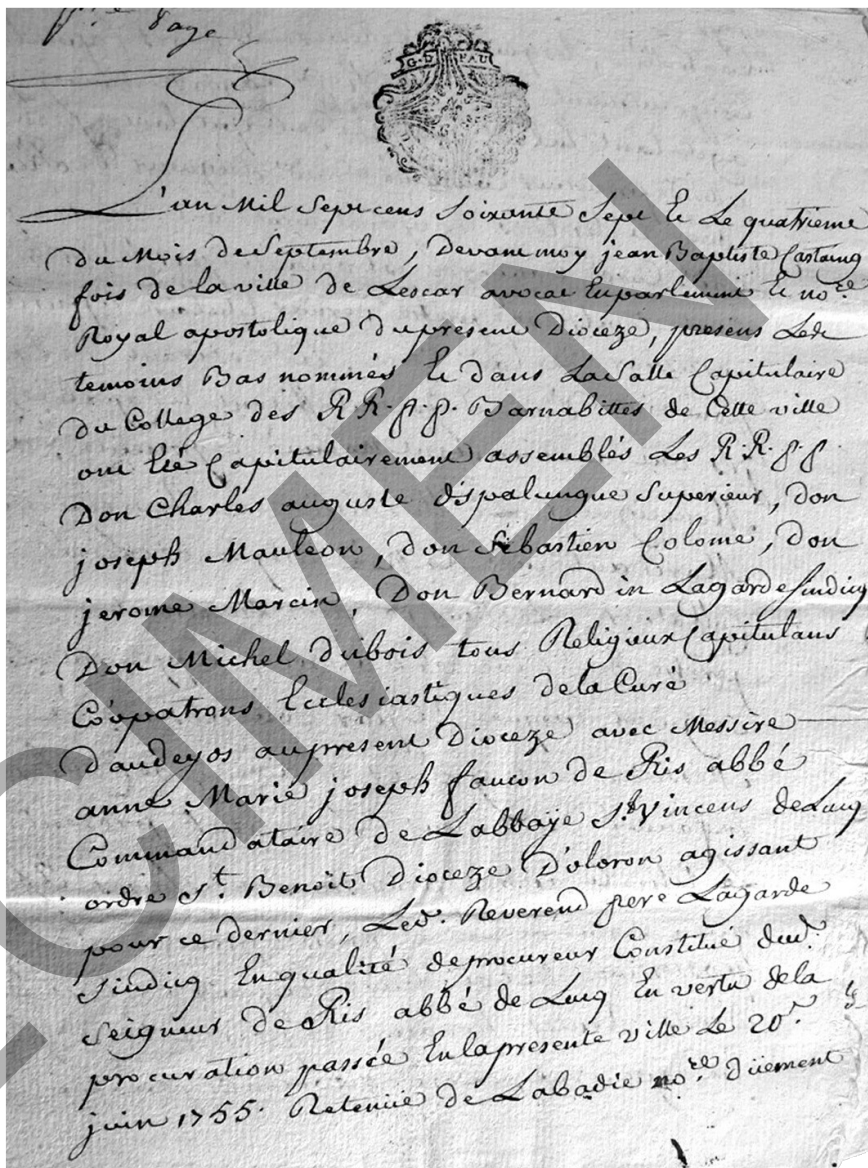 p.re page
G. D. PAU
L'an Mil Sept cens Soixante Sept Et Le quatrieme
du Mois de Septembre, Devant moy jean Baptiste Castaing
fois de la ville de Lescar avocat En parlement Et no.re
Royal apostolique du present Dioceze, presens Les
temoins Bas nommés Et dans La Salle Capitulaire
du College des R R. p. p. Barnabittes de Cette ville
ont Eté Capitulairement assemblés Les R. R. p. p.
Don Charles auguste d'Espalungue Superieur, don
joseph Mauleon, don Sebastien Colome, don
jerome Marcin, Don Bernardin Lagarde Sindicq
Don Michel dubois tous Religieux Capitulans
Co'opatrons Ecclesiastiques de la Curé
d'audeyos au present Dioceze avec Messire
anne Marie joseph faucon de Ris abbé
Commandataire de L'abbaÿe St Vincens de Lucq
ordre St. Benoît Dioceze D'oloron agissant
pour ce dernier, Led. Reverend pere Lagarde
Sindicq En qualité de procureur Constitué dud.
Seigneur de Ris abbé de Lucq En vertu de la
procuration passée En la presente ville Le 20e.
juin 1755. Retenüe de Labadie no.re düement
CIMEN